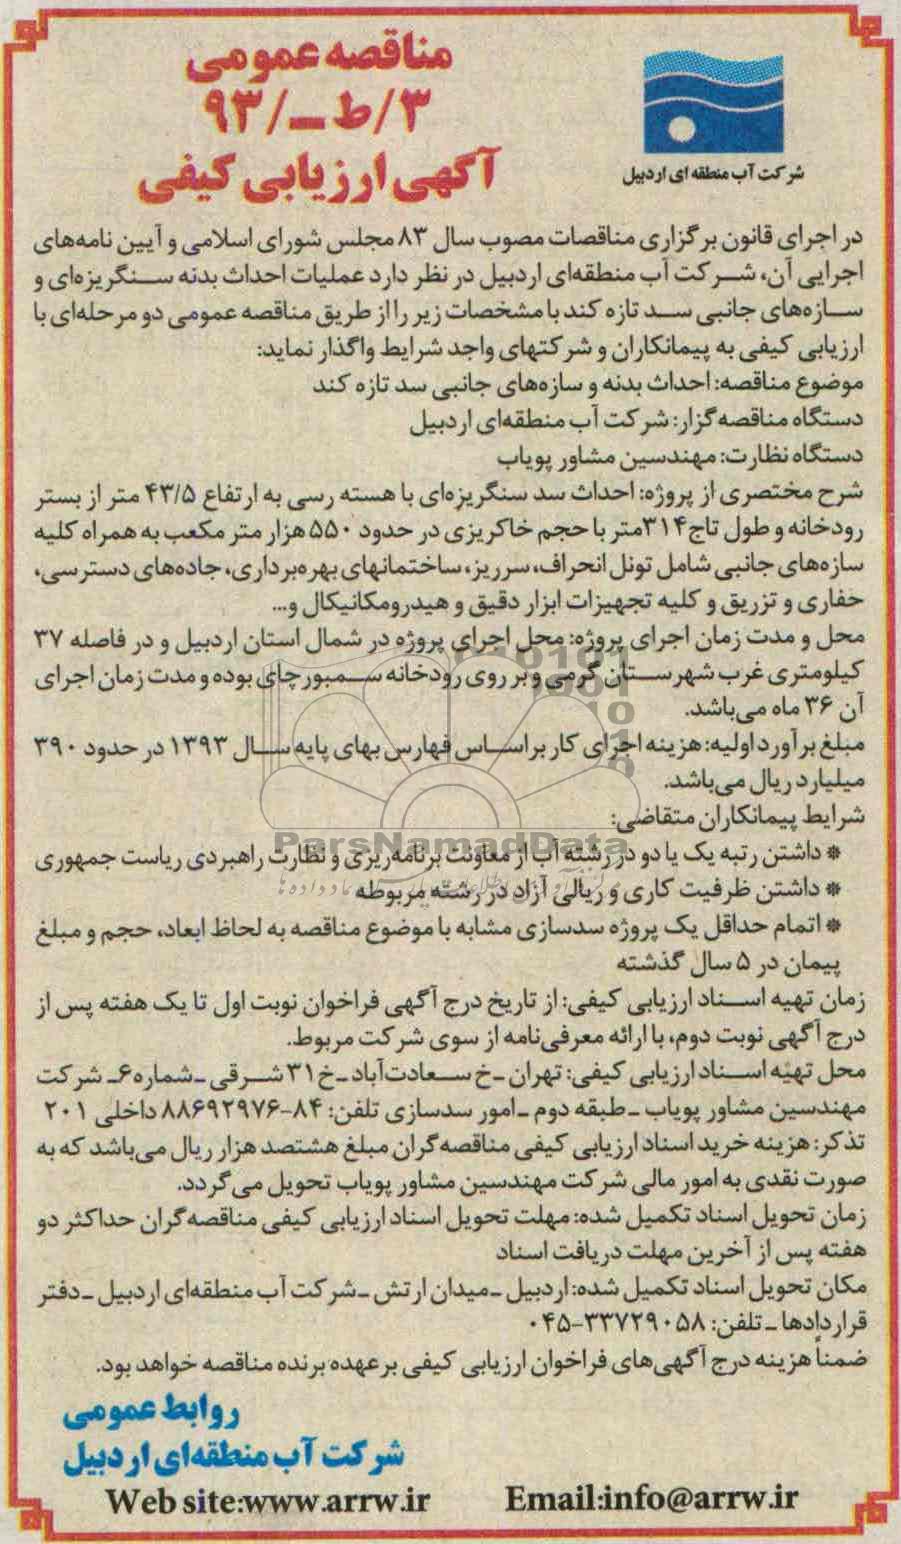 مناقصه عمومی
۳/ط-/۹۳
آگهی ارزیابی کیفی
شرکت آب منطقه ای اردبیل
در اجرای قانون برگزاری مناقصات مصوب سال ۸۳ مجلس شورای اسلامی و آیین نامه‌های
اجرایی آن، شرکت آب منطقه‌ای اردبیل در نظر دارد عملیات احداث بدنه سنگریزه‌ای و
سازه‌های جانبی سد تازه کند با مشخصات زیر را از طریق مناقصه عمومی دو مرحله‌ای با
ارزیابی کیفی به پیمانکاران و شرکتهای واجد شرایط واگذار نماید:
موضوع مناقصه: احداث بدنه و سازه‌های جانبی سد تازه کند
دستگاه مناقصه‌گزار: شرکت آب منطقه‌ای اردبیل
دستگاه نظارت: مهندسین مشاور پویاب
شرح مختصری از پروژه: احداث سد سنگریزه‌ای با هسته رسی به ارتفاع ۴۳/۵ متر از بستر
رودخانه و طول تاج ۳۱۴متر با حجم خاکریزی در حدود ۵۵۰ هزار متر مکعب به همراه کلیه
سازه‌های جانبی شامل تونل انحراف، سرریز، ساختمانهای بهره‌برداری، جاده‌های دسترسی،
حفاری و تزریق و کلیه تجهیزات ابزار دقیق و هیدرومکانیکال و...
محل و مدت زمان اجرای پروژه: محل اجرای پروژه در شمال استان اردبیل و در فاصله ۳۷
کیلومتری غرب شهرستان گرمی و بر روی رودخانه سمبورچای بوده و مدت زمان اجرای
آن ۳۶ ماه می‌باشد.
مبلغ برآورد اولیه: هزینه اجرای کار براساس فهارس بهای پایه سال ۱۳۹۳ در حدود ۳۹۰
میلیارد ریال می‌باشد.
شرایط پیمانکاران متقاضی:
* داشتن رتبه یک یا دو در رشته آب از معاونت برنامه‌ریزی و نظارت راهبردی ریاست جمهوری
* داشتن ظرفیت کاری و ریالی آزاد در رشته مربوطه
* اتمام حداقل یک پروژه سدسازی مشابه با موضوع مناقصه به لحاظ ابعاد، حجم و مبلغ
پیمان در ۵ سال گذشته
زمان تهیه اسناد ارزیابی کیفی: از تاریخ درج آگهی فراخوان نوبت اول تا یک هفته پس از
درج آگهی نوبت دوم، با ارائه معرفی‌نامه از سوی شرکت مربوط.
محل تهیه اسناد ارزیابی کیفی: تهران -خ سعادت‌آباد -خ ۳۱ شرقی -شماره ۶- شرکت
مهندسین مشاور پویاب -طبقه دوم -امور سدسازی تلفن: ۸۴-۸۸۶۹۲۹۷۶ داخلی ۲۰۱
تذکر: هزینه خرید اسناد ارزیابی کیفی مناقصه‌گران مبلغ هشتصد هزار ریال می‌باشد که به
صورت نقدی به امور مالی شرکت مهندسین مشاور پویاب تحویل می‌گردد.
زمان تحویل اسناد تکمیل شده: مهلت تحویل اسناد ارزیابی کیفی مناقصه‌گران حداکثر دو
هفته پس از آخرین مهلت دریافت اسناد
مکان تحویل اسناد تکمیل شده: اردبیل -میدان ارتش -شرکت آب منطقه‌ای اردبیل -دفتر
قراردادها - تلفن: ۳۳۷۲۹۰۵۸-۰۴۵
ضمناً هزینه درج آگهی‌های فراخوان ارزیابی کیفی برعهده برنده مناقصه خواهد بود.
روابط عمومی
شرکت آب منطقه‌ای اردبیل
Web site:www.arrw.ir Email:info@arrw.ir
ParsNamadData